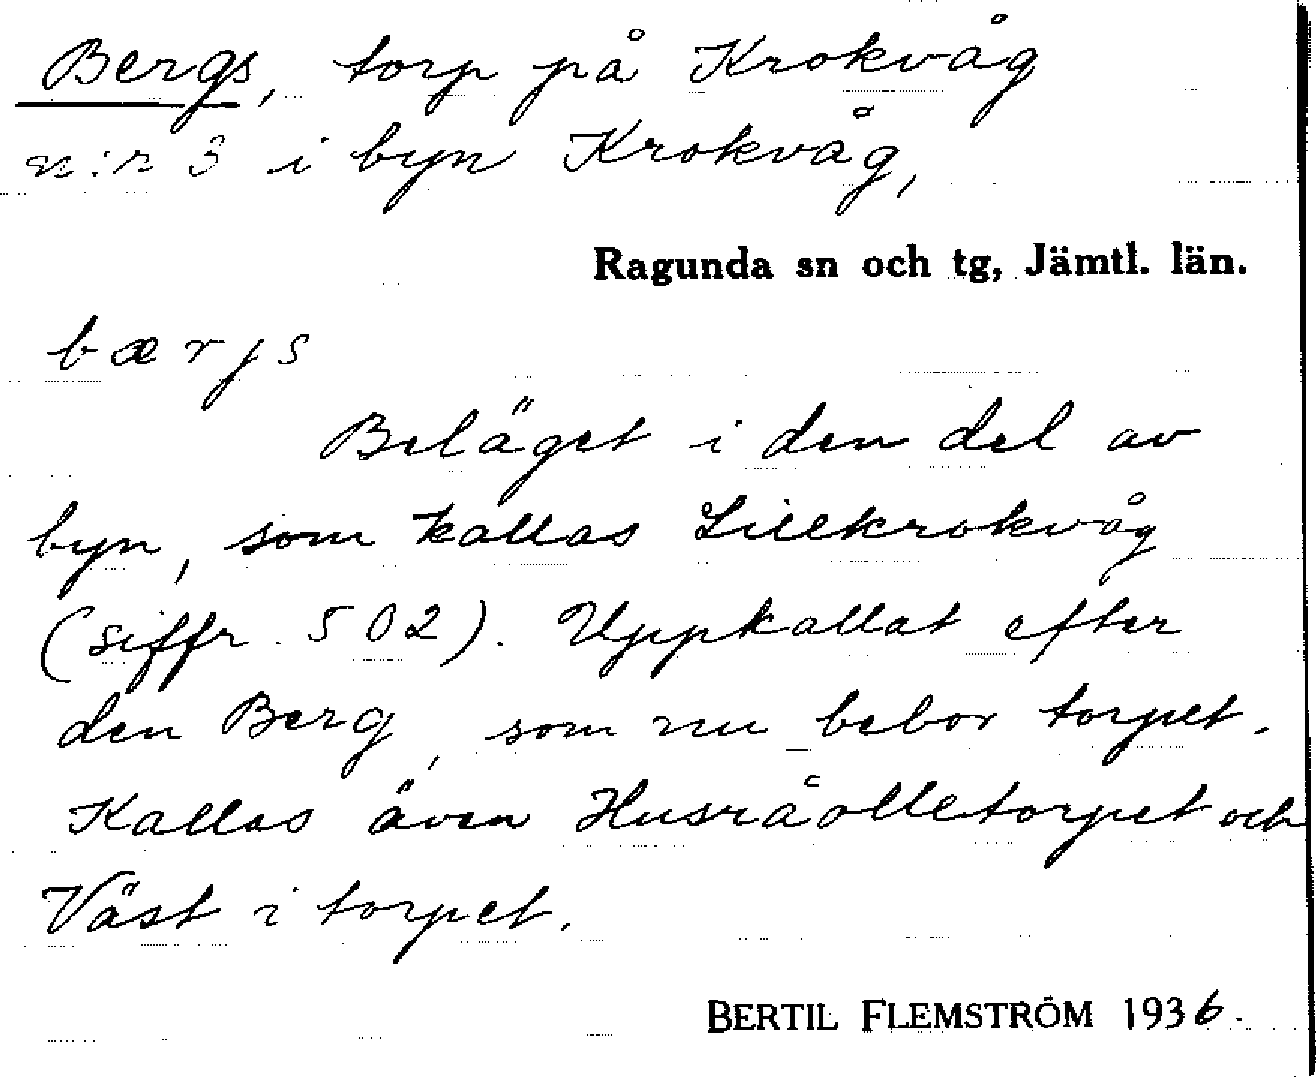 Bergs, torp på Krokvåg
n:r 3 i byn Krokvåg,
Ragunda sn och tg, Jämtl. län.
bærjs
Beläget i den del av
byn, som kallas Lillkrokvåg
(siffr. 502). Uppkallat efter
den Berg, som nu bebor torpet.
Kallas även Husråolletorpet och
Väst i torpet.
BERTIL FLEMSTRÖM 1936.